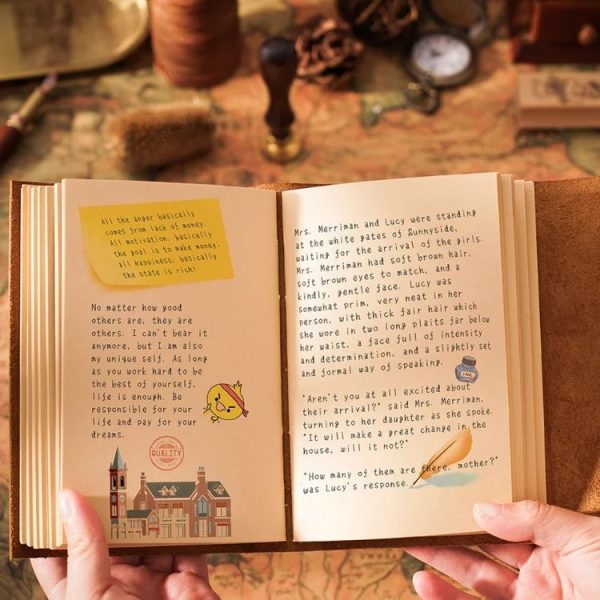 All the anger basically
comes from lack of money.
All motivation, basically
the goal is to make money;
all happiness, basically
the state is rich!
No matter how good
others are, they are
others. I can't bear it
anymore, but I am also
my unique self. As long
as you work hard to be
the best of yourself,
life is enough. Be
responsible for your
life and pay for your
dreams.
QUALITY
Mrs. Merriman and Lucy were standing
at the white gates of Sunnyside,
waiting for the arrival of the girls.
Mrs. Merriman had soft brown hair,
soft brown eyes to match, and a
kindly, gentle face. Lucy was
somewhat prim, very neat in her
person, with thick fair hair which
she wore in two long plaits far below
her waist, a face full of intensity
and determination, and a slightly set
and formal way of speaking.
"Aren't you at all excited about
their arrival?" said Mrs. Merriman,
turning to her daughter as she spoke.
"It will make a great change in the
house, will it not?"
"How many of them are there, mother?"
was Lucy's response.